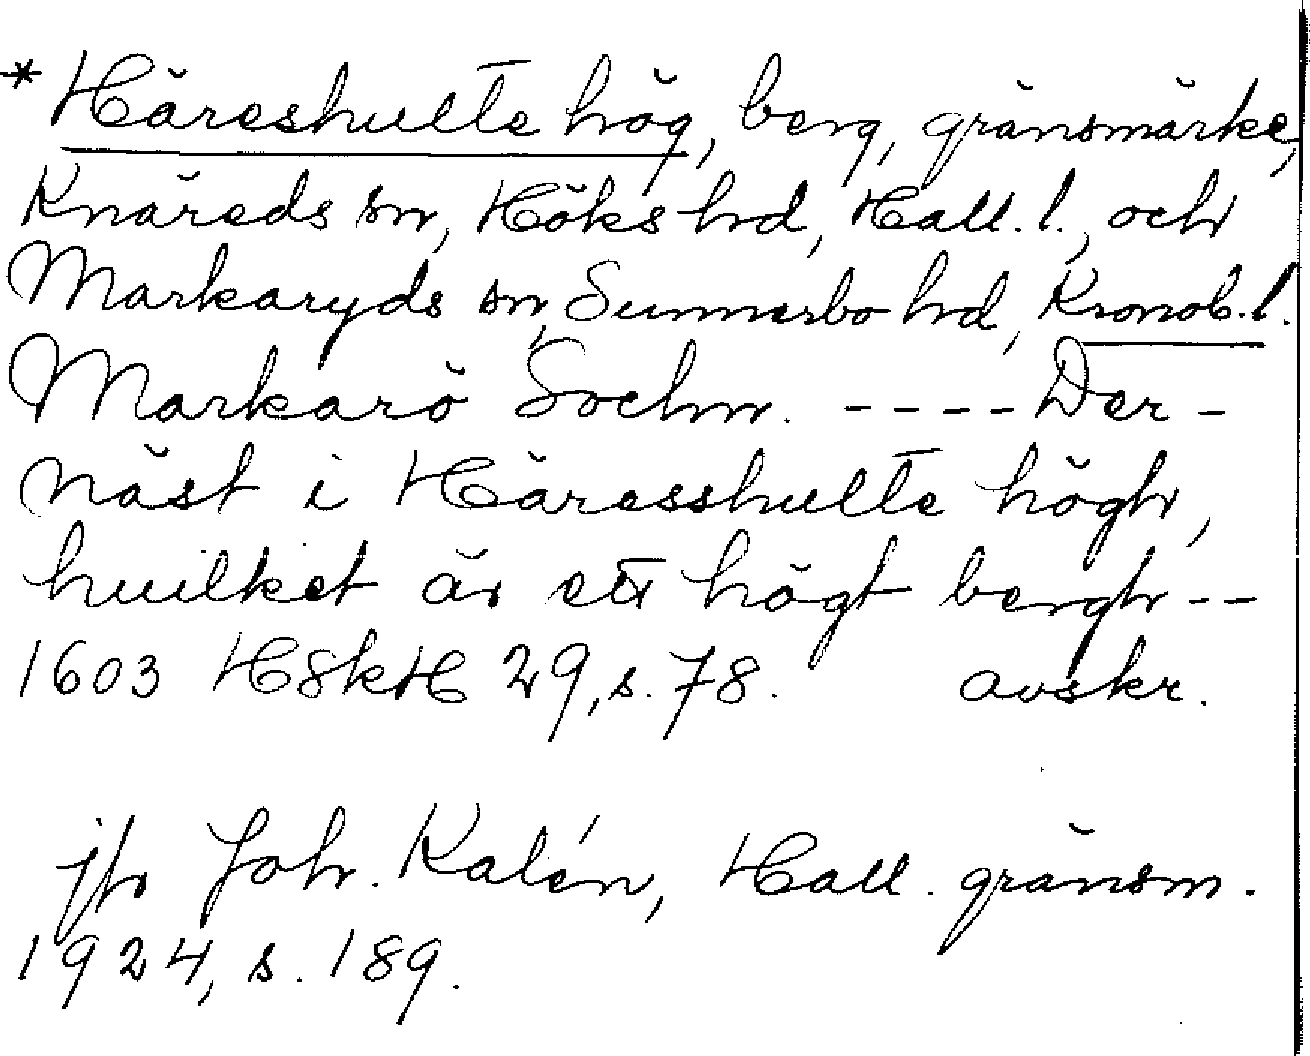 * Häreshulte hög, berg, gränsmärke,
Knäreds sn, Höks hd, Hall. l., och
Markaryds sn, Sunnerbo hd, Kronob. l.
Markarö Sochn. ---- Der-
näst i Häresshulte högh,
huilket är ett högt bergh --
1603 H8kH 29, s. 78. avskr.
jfr Joh. Kalén, Hall. gränsm.
1924, s. 189.